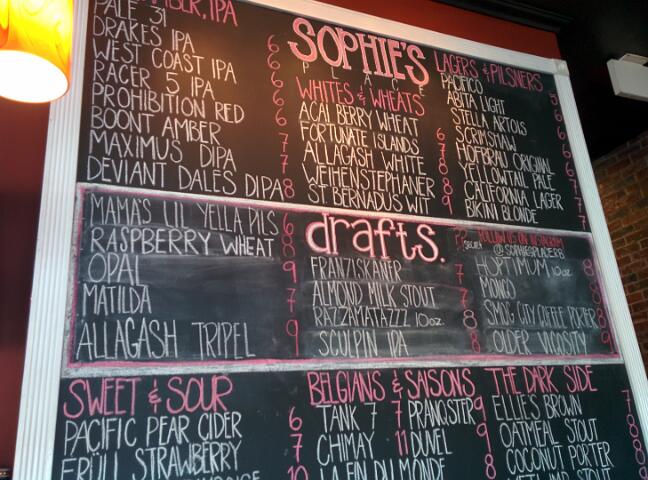 AMBER, IPA
PALE 31
DRAKES IPA 6
WEST COAST IPA 6
RACER 5 IPA 6
PROHIBITION RED 6
BOONT AMBER 6
MAXIMUS DIPA 7
DEVIANT DALES DIPA 8
SOPHIE'S
PLACE
WHITES & WHEATS
ACAI BERRY WHEAT
FORTUNATE ISLANDS 6
ALLAGASH WHITE 7
WEIHENSTEPHANER 8
ST. BERNADUS WIT 9
LAGERS & PILSNERS
PACIFICO 5
ABITA LIGHT
STELLA ARTOIS 6
SCRIMSHAW 6
HOFBRAU ORIGINAL 6
YELLOWTAIL PALE
CALIFORNIA LAGER 7
BIKINI BLONDE 7
MAMA'S LIL YELLA PILS 6
RASPBERRY WHEAT 8
OPAL 9
MATILDA 7
ALLAGASH TRIPEL 9
drafts.
FRANZISKANER 7
ALMOND MILK STOUT 7
RAZZAMATAZZZ 10oz. 8
SCULPIN IPA 8
FOLLOW US ON INSTAGRAM
@SOPHIESPLACERB
HOPTIMUM 10oz 8
MONGO 8
SMOG CITY COFFEE PORTER 8
OLDER VISCOSITY 9
SWEET & SOUR
PACIFIC PEAR CIDER 6
FRÜLI STRAWBERRY 7
10
BELGIANS & SAISONS
TANK 7 7 PRANQSTER 9
CHIMAY 11 DUVEL 9
LA FIN DU MONDE 9
THE DARK SIDE
ELLIE'S BROWN 7
OATMEAL STOUT 8
COCONUT PORTER 8
YETI IMP STOUT